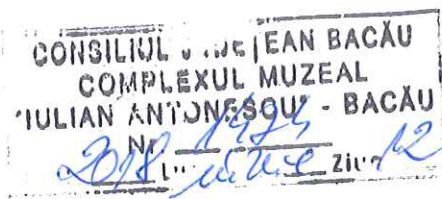 CONSILIUL JUDEȚEAN BACĂU
COMPLEXUL MUZEAL
"IULIAN ANTONESCU" - BACĂU
Nr.
2018 L iunie Ziua 12